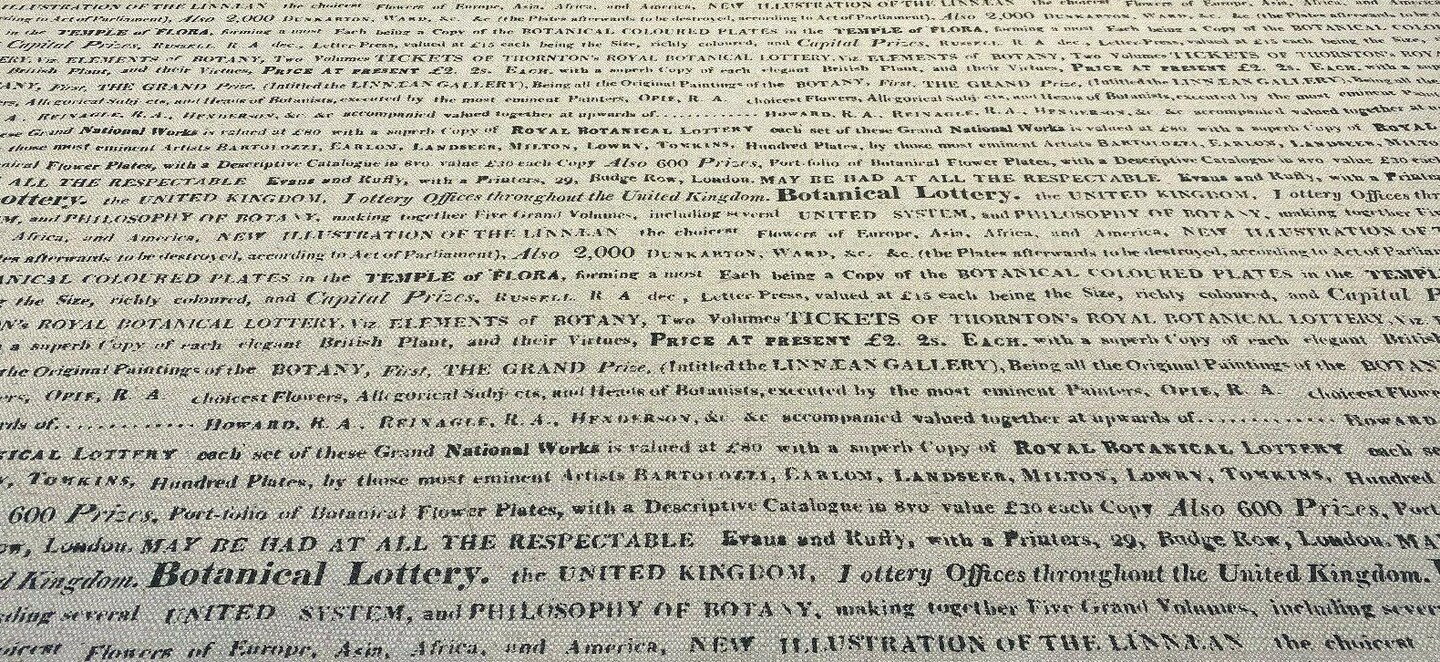 ILLUSTRATION OF THE LINNÆAN the choicest Flowers of Europe, Asia, Africa, and America, NEW ILLUSTRATION OF THE LINNÆAN the choicest Flowers of Europe, Asia, Africa, and America,
according to Act of Parliament), Also 2,000 DUNKARTON, WARD, &c. &c. (the Plates afterwards to be destroyed, according to Act of Parliament). Also 2,000 DUNKARTON, WARD, &c. &c. (the Plates afterwards
in the TEMPLE of FLORA, forming a most Each being a Copy of the BOTANICAL COLOURED PLATES in the TEMPLE of FLORA, forming a most Each being a Copy of the BOTANICAL
Capital Prizes, RUSSELL R A dec., Letter-Press, valued at £15 each being the Size, richly coloured, and Capital Prizes, RUSSELL R A dec., Letter-Press, valued at £15 each being the Size,
Viz ELEMENTS of BOTANY, Two Volumes TICKETS OF THORNTON'S ROYAL BOTANICAL LOTTERY, Viz ELEMENTS of BOTANY, Two Volumes TICKETS OF THORNTON'S ROYAL BOTANICAL
British Plant, and their Virtues, PRICE AT PRESENT £2. 2s. EACH. with a superb Copy of each elegant British Plant, and their Virtues, PRICE AT PRESENT £2. 2s. EACH. with a
First, THE GRAND Prize, (Intitled the LINNÆAN GALLERY), Being all the Original Paintings of the BOTANY, First, THE GRAND Prize, (Intitled the LINNÆAN GALLERY), Being all the
Allegorical Subjects, and Heads of Botanists, executed by the most eminent Painters, OPIE, R. A. choicest Flowers, Allegorical Subj cts, and Heads of Botanists, executed by the most eminent
A., REINAGLE, R. A., HENDERSON, &c &c accompanied valued together at upwards of............ HOWARD, R. A., REINAGLE, R. A., HENDERSON, &c &c accompanied valued together at
these Grand National Works is valued at £80 with a superb Copy of ROYAL BOTANICAL LOTTERY each set of these Grand National Works is valued at £80 with a superb Copy of ROYAL
those most eminent Artists BARTOLOZZI, EARLOM, LANDSEER, MILTON, LOWRY, TOMKINS, Hundred Plates, by those most eminent Artists BARTOLOZZI, EARLOM, LANDSEER,
Flower Plates, with a Descriptive Catalogue in 8vo value £30 each Copy Also 600 Prizes, Port-folio of Botanical Flower Plates, with a Descriptive Catalogue in 8vo value £30 each
ALL THE RESPECTABLE Evans and Ruffy, with a Printers, 29, Budge Row, London. MAY BE HAD AT ALL THE RESPECTABLE Evans and Ruffy, with a
Lottery. the UNITED KINGDOM, Lottery Offices throughout the United Kingdom. Botanical Lottery. the UNITED KINGDOM, Lottery Offices
and PHILOSOPHY OF BOTANY, making together Five Grand Volumes, including several UNITED SYSTEM, and PHILOSOPHY OF BOTANY, making together
Africa, and America, NEW ILLUSTRATION OF THE LINNÆAN the choicest Flowers of Europe, Asia, Africa, and America, NEW ILLUSTRATION OF
afterwards to be destroyed, according to Act of Parliament), Also 2,000 DUNKARTON, WARD, &c. &c. (the Plates afterwards to be destroyed, according to Act of
COLOURED PLATES in the TEMPLE of FLORA, forming a most Each being a Copy of the BOTANICAL COLOURED PLATES in the
the Size, richly coloured, and Capital Prizes, RUSSELL R A dec., Letter-Press, valued at £15 each being the Size, richly coloured, and Capital
ROYAL BOTANICAL LOTTERY, Viz. ELEMENTS of BOTANY, Two Volumes TICKETS OF THORNTON'S ROYAL BOTANICAL LOTTERY, Viz.
a superb Copy of each elegant British Plant, and their Virtues, PRICE AT PRESENT £2. 2s. EACH. with a superb Copy of each elegant British
the Original Paintings of the BOTANY, First, THE GRAND Prize, (Intitled the LINNÆAN GALLERY), Being all the Original Paintings of the
OPIE, R. A. choicest Flowers, Allegorical Subj cts, and Heads of Botanists, executed by the most eminent Painters, OPIE, R. A. choicest
of............ HOWARD, R. A., REINAGLE, R. A., HENDERSON, &c &c accompanied valued together at upwards of............ HOWARD,
LOTTERY each set of these Grand National Works is valued at £80 with a superb Copy of ROYAL BOTANICAL LOTTERY each
TOMKINS, Hundred Plates, by those most eminent Artists BARTOLOZZI, EARLOM, LANDSEER, MILTON, LOWRY, TOMKINS, Hundred
600 Prizes, Port-folio of Botanical Flower Plates, with a Descriptive Catalogue in 8vo value £30 each Copy Also 600 Prizes,
London. MAY BE HAD AT ALL THE RESPECTABLE Evans and Ruffy, with a Printers, 29, Budge Row, London.
Kingdom. Botanical Lottery. the UNITED KINGDOM, Lottery Offices throughout the United Kingdom.
several UNITED SYSTEM, and PHILOSOPHY OF BOTANY, making together Five Grand Volumes, including
Flowers of Europe, Asia, Africa, and America, NEW ILLUSTRATION OF THE LINNÆAN the choicest